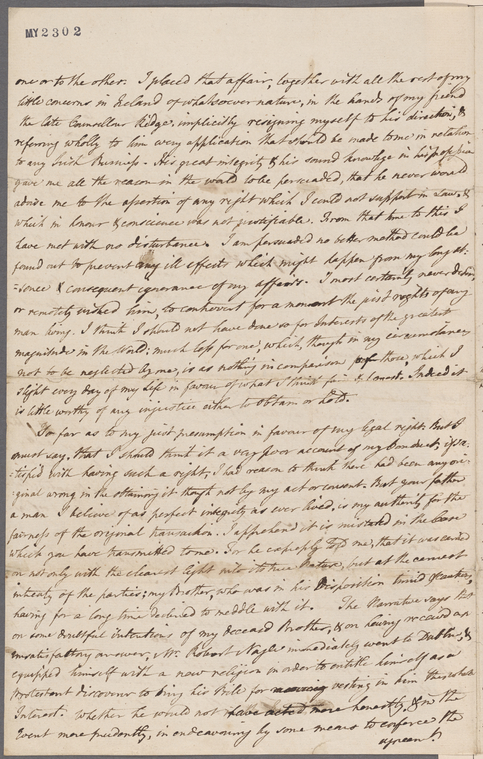 MY2302
one or to the other. I placed that affair, together with all the rest of my
little concerns in Ireland of whatsoever nature, in the hands of my friend
the late Counsellor Ridge, implicitly resigning myself to his direction, &
referring wholly to him every application that should be made to me in relation
to any Irish Business. His great integrity & his sound knowlege in his profession
gave me all the reason in the world to be persuaded, that he never would
advise me to the assertion of any right which I could not support in Law, &
which in honour & conscience was not justifiable. From that time to this I
have met with no disturbance. I am persuaded no better method could be
found out to prevent any ill effects which might happen from my long ab:
:sence & consequent ignorance of my affairs. I most certainly never desired
or remotely wished him, to controvert for a moment the just rights of any
man living. I think I should not have done so for Interests of the greatest
magnitude in the World: much less for one, which, though in my circumstances
not to be neglected by me, is as nothing in comparison of those, which I
slight every day of my life in favour of what I think fair & honest. Indeed it
is little worthy of any injustice either to obtain or hold.
So far as to my just presumption in favour of my legal right. But I
must say, that I should think it a very poor account of my Conduct, if sa:
:tisfied with having such a right, I had reason to think there had been any ori:
:ginal wrong in the obtaining it though not by my act or consent. But your father
a man I believe of as perfect integrity as ever lived, is my authority for the
fairness of the original transaction. I apprehend it is mistaked in the Case
which you have transmitted to me. For he expressly told me, that it was carried
on not only with the clearest light into its true Nature, but at the earnest
intreaty of the parties; my Brother, who was in his Disposition timid & cautious,
having for a long time declined to meddle with it. The Narrative says that
on some doubtful intentions of my deceased Brother, & on having received an
unsatisfactory answer, Mr. Robert Nagle immediately went to Dublin, &
equipped himself with a new religion in order to entitle himself as a
Protestant discoverer to bring his Bill for vesting in him the whole
Interest. Whether he would not have acted more honestly, & in the
Event more prudently, in endeavouring by some means to enforce the
agreemt.